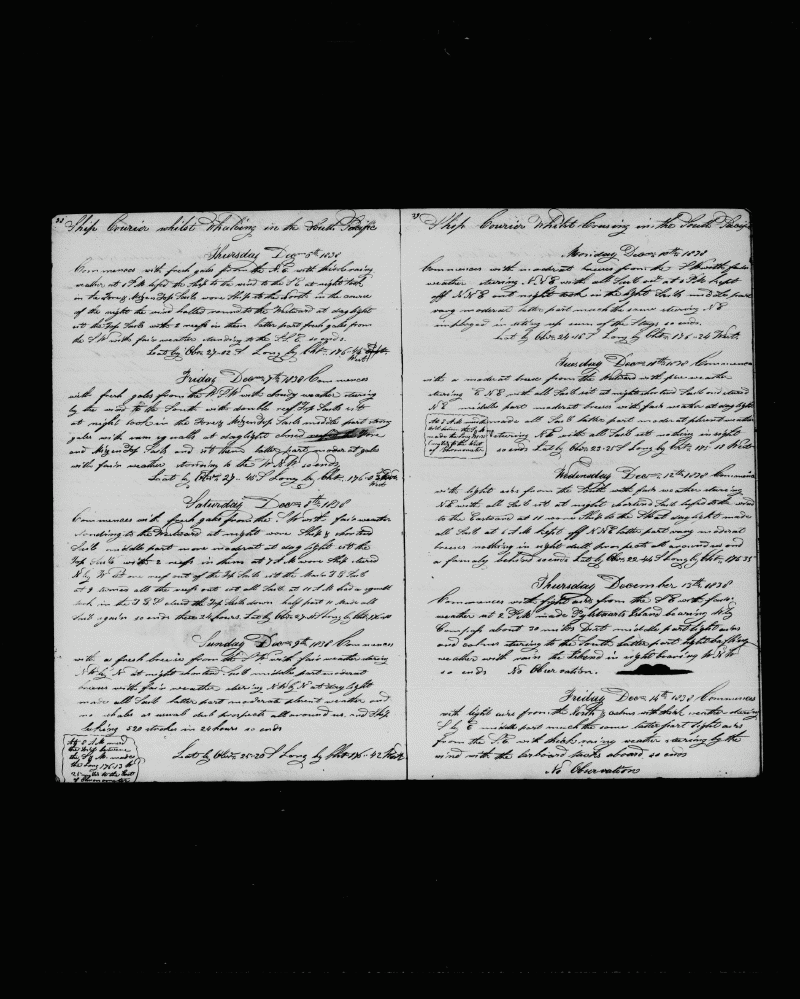 Ship Courier whilst Whaling in the South Pacific
Thursday Dec 6th 1838
Commences with fresh gales from the N.E. with thick rainy
weather at 1 P.M. the Ship to the wind to the S E at night took
in the Fore & Mizen Top Sails wore Ship to the South in the course
of the night the wind to the Westward at daylight
set the Top Sails with 2 reefs in them latter part fresh gales from
the S W with fair weather standing to the
Lat by Obn 27-02 S Long by Chr 176-46
West
Friday Decm 7th 1838 Commences
with fresh gales from the W S W with cloudy weather steering
by the wind to the South with double reef Top Sails set
at night took in the Fore & Mizen Top Sails middle part strong
gales with rain squalls at daylight closed
and Mizen Top Sails and set them latter part moderate gales
with fair weather standing to the W N W so ends
Lat by Obn 27- S Long by Chr 176-
West
Saturday Decm 8th 1838
Commences with fresh gales from the S W with fair weather
standing to the Westward at night wore Ship & shorted
Sail middle part more moderate at day light set the
Top Sails with 2 reefs in them at 7 A M wore Ship steered
N by W at one reef out of the Top Sails set the Main T G Sail
at 9 turned all the reefs out set all Sail at 11 A M had a squall
took in the T G S clewed the Top Sails down half past 11 made all
Sail again so ends these 24 hours Lat by Obn S Long by Chr 176-
Sunday Decm 9th 1838 Commences
with a fresh breeze from the S W with fair weather steering
N W by N at night shorted Sail middle part moderate
breezes with fair weather steering N W by N at day light
made all Sail latter part moderate pleasant weather and
no whales as usual dull prospects all around us and Ship
leaking 520 strokes in 24 hours so ends
Lat by Obn 25-20 S Long by Chr 176-42 West
Ship Courier Whilst Cruising in the South Pacific
Monday Decm 10th 1838
Commences with moderate breezes from the S W with fair
weather steering N.N.E with all Sail out at 6 P.M. kept
off N.N.E at night took in the light Sails middle part
very moderate latter part much the same steering N E
employed in setting up some of the Stays so ends
Lat by Obn 24-16 S Long by Chr 176-24 West
Tuesday Decm 11th 1838 Commences
with a moderate breeze from the Westward with fine weather
steering E N E with all Sail set at night shorted Sail and steered
N E middle part moderate breezes with fair weather at day light
made all Sail latter part moderate pleasant weather
steering N E with all Sail set nothing in sight
so ends Lat by Obn 23-25 S Long by Chr West
Wednesday Decm 12th 1838 Commences
with light airs from the South with fair weather steering
N E with all Sail set at night shortened Sail to the wind
to the Eastward at 11 wore Ship to the West day light made
all Sail at 6 A M kept off N N E latter part very moderate
breezes nothing in sight dull prospects all around us and
a family behind so ends Lat by Obn 22-44 S Long by Chr 176 35
Thursday December 13th 1838
Commences with light airs from the S E with fair
weather at 2 P.M. made Pylstaarts Island bearing W by
Compass about 30 miles Dist middle part light airs
and calms steering to the South latter part light baffling
weather with rain the Island in sight bearing W N W
so ends No Observation.
Friday Decm 14th 1838 Commences
with light airs from the North & calms with thick weather steering
S by E middle part much the same latter part light airs
from the S.E. with thick rainy weather steering by the
wind with the larboard tacks aboard so ends
No Observation